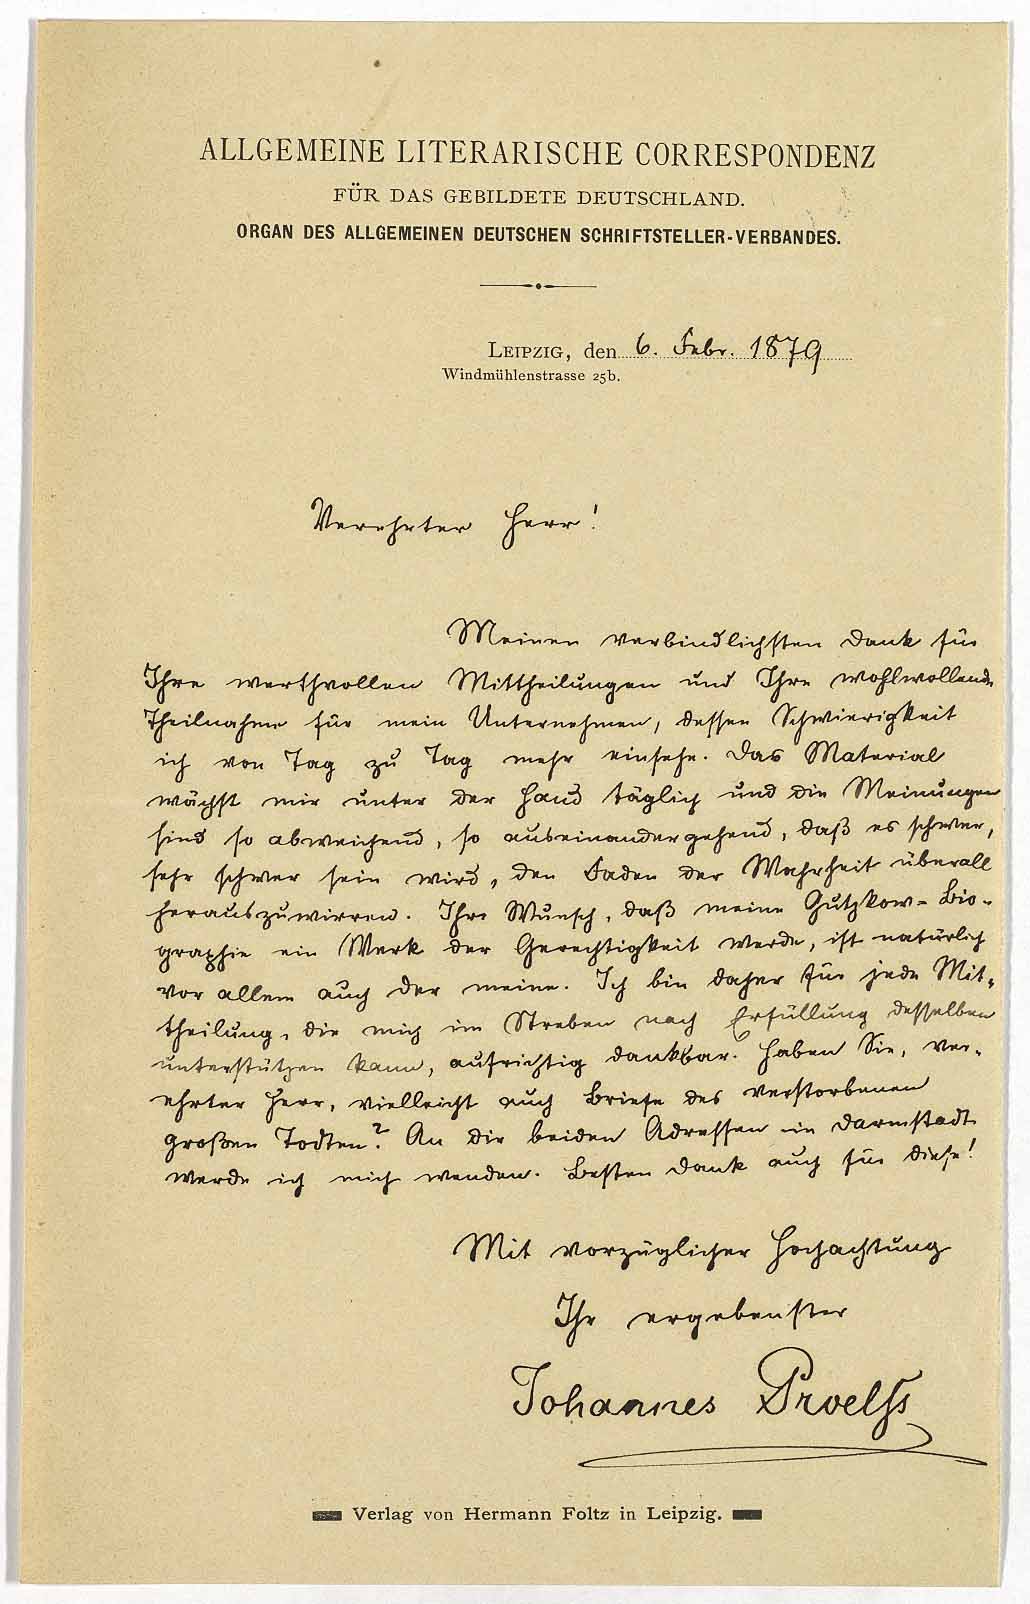 ALLGEMEINE LITERARISCHE CORRESPONDENZ
FÜR DAS GEBILDETE DEUTSCHLAND.
ORGAN DES ALLGEMEINEN DEUTSCHEN SCHRIFTSTELLER-VERBANDES.
LEIPZIG, den 6. Febr. 1879
Windmühlenstrasse 25b.
Verehrter Herr!
Meinen verbindlichsten Dank für
Ihre werthvollen Mittheilungen und Ihre wohlwollende
Theilnahme für mein Unternehmen, dessen Schwierigkeit
ich von Tag zu Tag mehr einsehe. Das Material
wächst mir unter der Hand täglich und die Meinungen
sind so abweichend, so auseinandergehend, daß es schwer,
sehr schwer sein wird, den Faden der Wahrheit überall
herauszuwirren. Ihr Wunsch, daß meine Gutzkow-Bio-
graphie ein Werk der Gerechtigkeit werde, ist natürlich
vor allem auch der meine. Ich bin daher für jede Mit-
theilung, die mich im Streben nach Erfüllung desselben
unterstützen kann, aufrichtig dankbar. Haben Sie, ver-
ehrter Herr, vielleicht auch Briefe des verstorbenen
großen Todten? An die beiden Adressen in Darmstadt
werde ich mich wenden. Besten Dank auch für diese!
Mit vorzüglicher Hochachtung
Ihr ergebenster
Johannes Proelss
Verlag von Hermann Foltz in Leipzig.